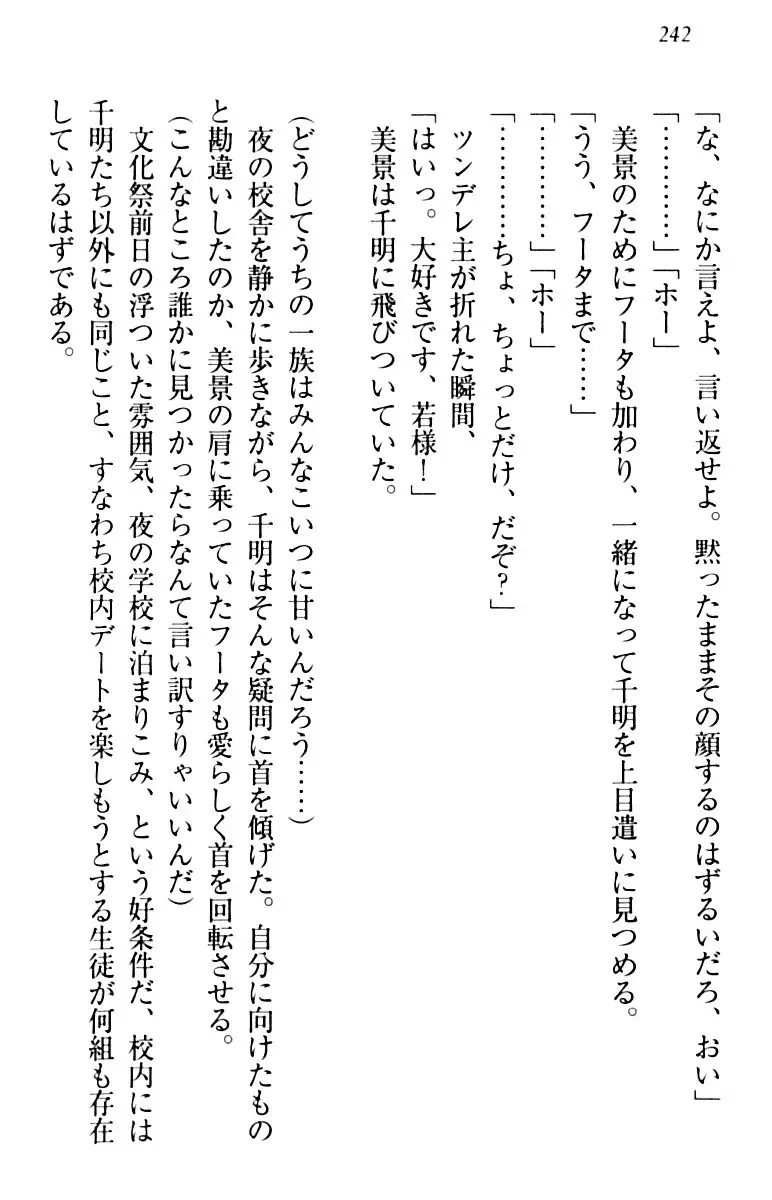 242
「な、なにか言えよ、言い返せよ。黙ったままその顔するのはずるいだろ、おい」
「…………」「ホー」
美景のためにフータも加わり、一緒になって千明を上目遣いに見つめる。
「うう、フータまで……」
「…………」「ホー」
「…………ちょ、ちょっとだけ、だぞ？」
ツンデレ主が折れた瞬間、
「はいっ。大好きです、若様！」
美景は千明に飛びついていた。
（どうしてうちの一族はみんなこいつに甘いんだろう……）
夜の校舎を静かに歩きながら、千明はそんな疑問に首を傾げた。自分に向けたもの
と勘違いしたのか、美景の肩に乗っていたフータも愛らしく首を回転させる。
（こんなところ誰かに見つかったらなんて言い訳すりゃいいんだ）
文化祭前日の浮ついた雰囲気、夜の学校に泊まりこみ、という好条件だ、校内には
千明たち以外にも同じこと、すなわち校内デートを楽しもうとする生徒が何組も存在
しているはずである。